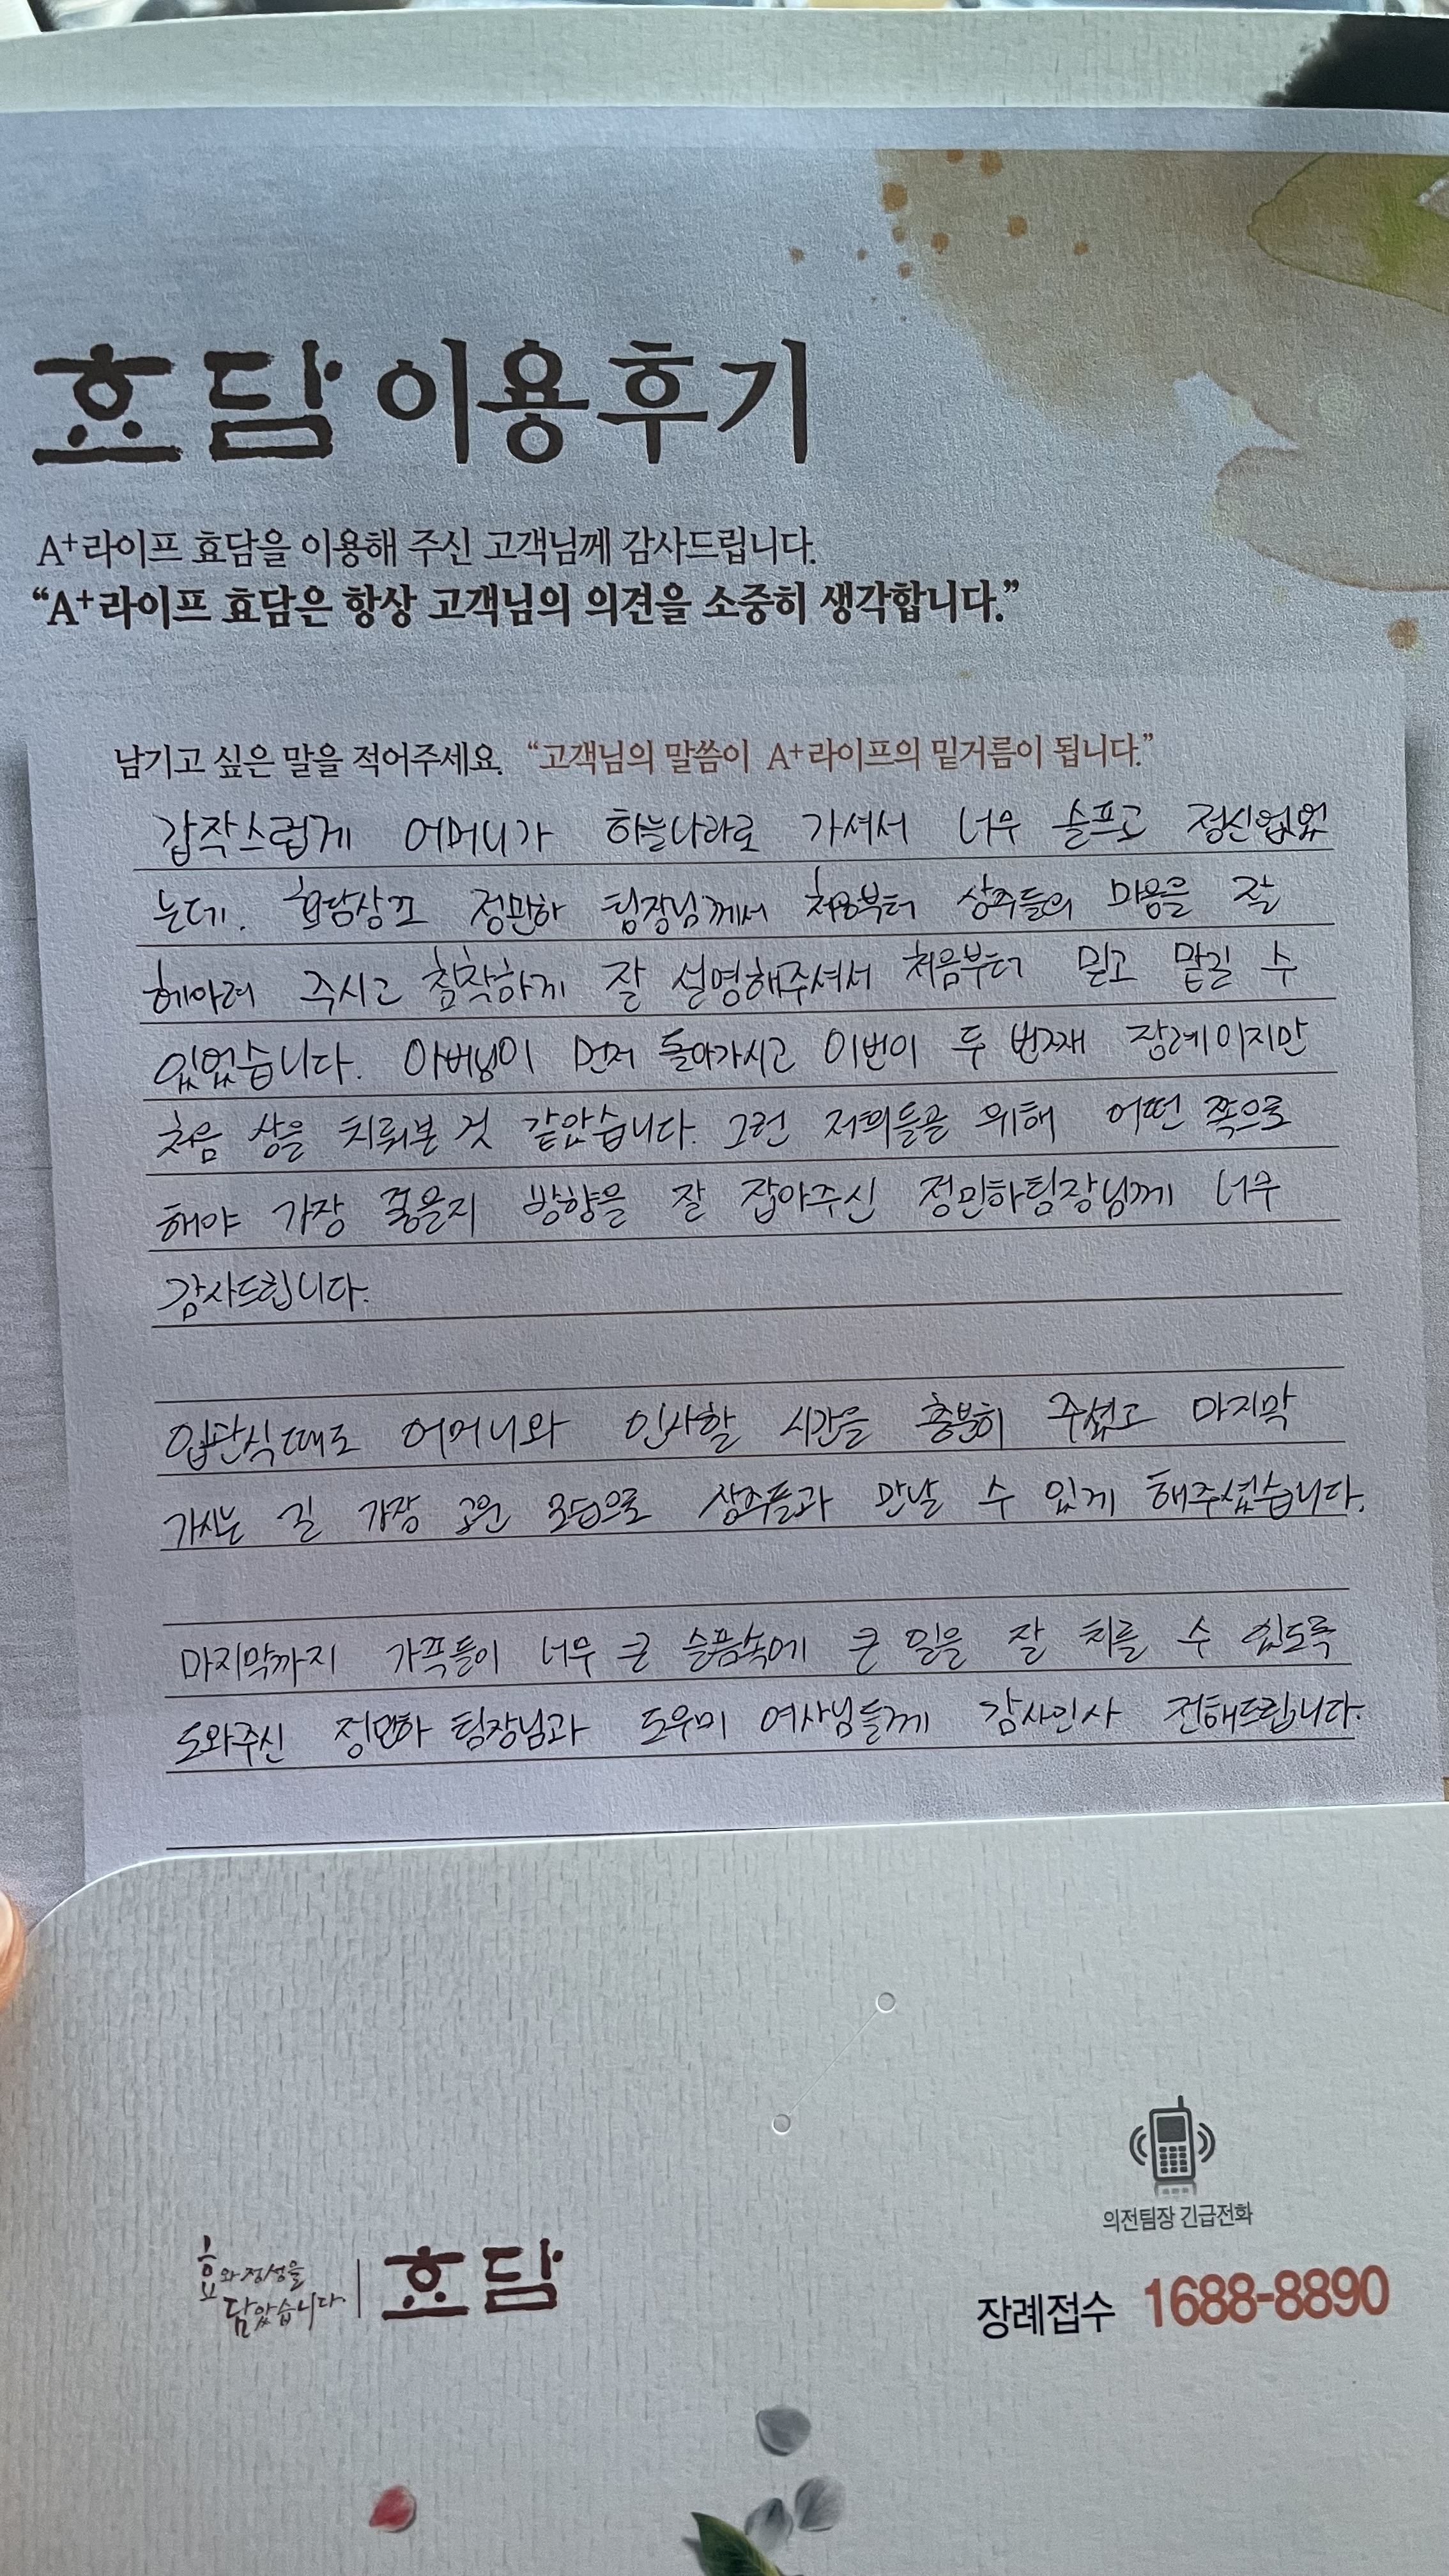 효담 이용후기
A+라이프 효담을 이용해 주신 고객님께 감사드립니다.
“A+라이프 효담은 항상 고객님의 의견을 소중히 생각합니다.”
남기고 싶은 말을 적어주세요. “고객님의 말씀이 A+라이프의 밑거름이 됩니다.”
갑작스럽게 어머니가 하늘나라로 가셔서 너무 슬프고 정신없었
는데. 효담상조 정민하 팀장님께서 처음부터 상주들의 마음을 잘
헤아려 주시고 침착하게 잘 설명해주셔서 처음부터 믿고 맡길 수
있었습니다. 아버님이 먼저 돌아가시고 이번이 두 번째 장례이지만
처음 상을 치뤄본 것 같았습니다. 그런 저희들을 위해 어떤 쪽으로
해야 가장 좋을지 방향을 잘 잡아주신 정민하팀장님께 너무
감사드립니다.
입관식때도 어머니와 인사할 시간을 충분히 주셨고 마지막
가시는 길 가장 고운 모습으로 상주들과 만날 수 있게 해주셨습니다.
마지막까지 가족들이 너무 큰 슬픔속에 큰 일을 잘 치를 수 있도록
도와주신 정민하 팀장님과 도우미 여사님들께 감사인사 전해드립니다.
의전팀장 긴급전화
효와 정성을
담았습니다.
효담
장례접수 1688-8890